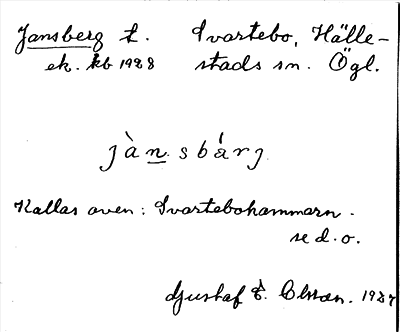 Jansberg t. Svartebo, Hälle-
ek. kb 1928 stads sn. Ögl.
jàn. sbárj
Kallas även: Svartebohammarn.
se d. o.
Gustaf E. Olsson. 1927